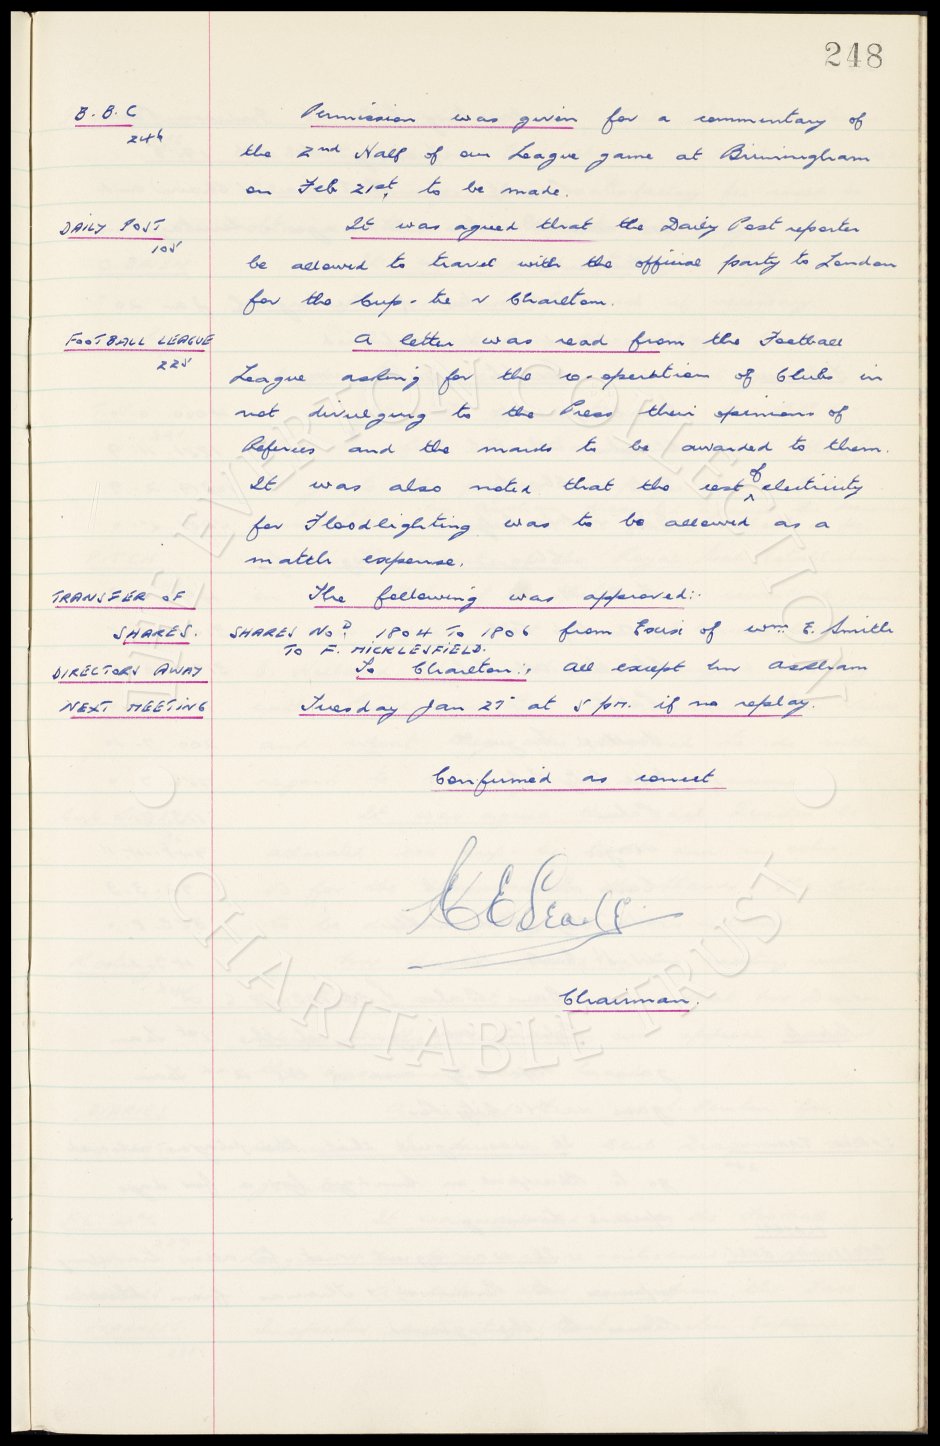 248
B.B.C Permission was given for a commentary of
246 the 2nd Half of our League game at Birmingham
on Feb 21st, to be made.
DAILY POST It was agreed that the Daily Post reporter
105 be allowed to travel with the official party to London
for the Cup-tie v Charlton.
FOOTBALL LEAGUE A letter was read from the Football
225 League asking for the co-operation of Clubs in
not divulging to the Press their opinions of
Referees and the marks to be awarded to them.
It was also noted that the cost of electricity
for Floodlighting was to be allowed as a
match expense.
TRANSFER OF The following was approved:-
SHARES. SHARES Nos. 1804 TO 1806 from Exrs of Wm. E. Smith
TO F. MICKLESFIELD.
DIRECTORS AWAY To Charlton:- All except Mr Askham
NEXT MEETING Tuesday Jan 27 at 5 pm. if no replay.
Confirmed as correct
Chairman.
THE EVERTON COLLECTION
CHARITABLE TRUST